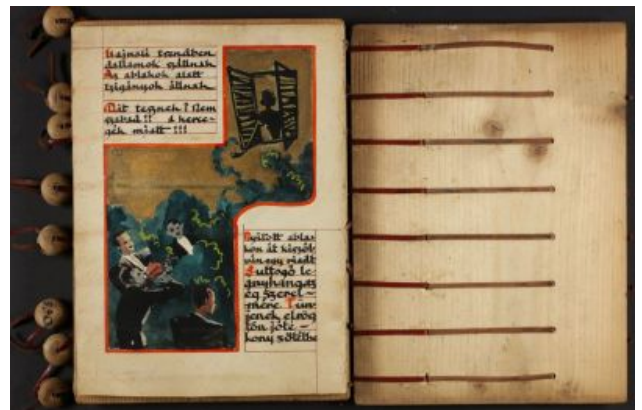 Hajnali trendben
dallamok szállnak
Az ablakok alatt
czigányok állnak
Mit tesznek? Nem
szabad!! A herce-
gék miatt!!!
Nyitott ablas
kon át kiszól
ván egy riadt
Suttogó le-
ányhang az
ég szerel-
mére
jenek elrög
tön jóté-
kony sötétbe